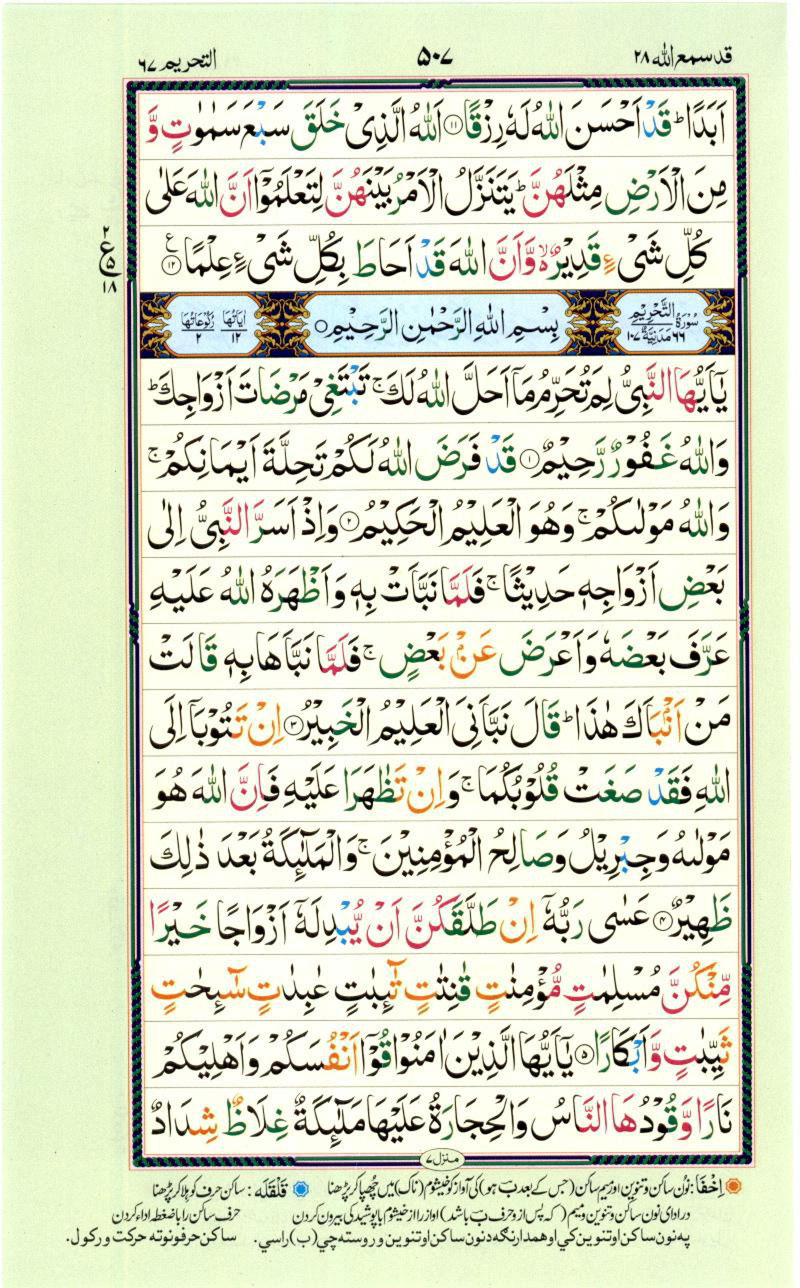 قد سمع الله ٢٨
٥٠٧
التحريم ٦٧
اَبَدًا ؕ قَدْ اَحْسَنَ اللّٰهُ لَهٗ رِزْقًا ۝۱۱ اَللّٰهُ الَّذِیْ خَلَقَ سَبْعَ سَمٰوٰتٍ وَّ
مِنَ الْاَرْضِ مِثْلَهُنَّ ؕ یَتَنَزَّلُ الْاَمْرُ بَیْنَهُنَّ لِتَعْلَمُوْۤا اَنَّ اللّٰهَ عَلٰی
كُلِّ شَیْءٍ قَدِیْرٌ ۙ۬ وَّ اَنَّ اللّٰهَ قَدْ اَحَاطَ بِكُلِّ شَیْءٍ عِلْمًا ۝۱۲
٢
ع
٥
١٨
سُوْرَةُ التَّحْرِیْمِ
٦٦ مَدَنِیَّةٌ ١٠٧
بِسْمِ اللّٰهِ الرَّحْمٰنِ الرَّحِیْمِ
اٰیَاتُهَا ١٢ رُكُوْعَاتُهَا ٢
یٰۤاَیُّهَا النَّبِیُّ لِمَ تُحَرِّمُ مَاۤ اَحَلَّ اللّٰهُ لَكَ ۚ تَبْتَغِیْ مَرْضَاتَ اَزْوَاجِكَ ؕ
وَ اللّٰهُ غَفُوْرٌ رَّحِیْمٌ ۝۱ قَدْ فَرَضَ اللّٰهُ لَكُمْ تَحِلَّةَ اَیْمَانِكُمْ ۚ
وَ اللّٰهُ مَوْلٰىكُمْ ۚ وَ هُوَ الْعَلِیْمُ الْحَكِیْمُ ۝۲ وَ اِذْ اَسَرَّ النَّبِیُّ اِلٰی
بَعْضِ اَزْوَاجِهٖ حَدِیْثًا ۚ فَلَمَّا نَبَّاَتْ بِهٖ وَ اَظْهَرَهُ اللّٰهُ عَلَیْهِ
عَرَّفَ بَعْضَهٗ وَ اَعْرَضَ عَنْۢ بَعْضٍ ۚ فَلَمَّا نَبَّاَهَا بِهٖ قَالَتْ
مَنْ اَنْۢبَاَكَ هٰذَا ؕ قَالَ نَبَّاَنِیَ الْعَلِیْمُ الْخَبِیْرُ ۝۳ اِنْ تَتُوْبَاۤ اِلَی
اللّٰهِ فَقَدْ صَغَتْ قُلُوْبُكُمَا ۚ وَ اِنْ تَظٰهَرَا عَلَیْهِ فَاِنَّ اللّٰهَ هُوَ
مَوْلٰىهُ وَ جِبْرِیْلُ وَ صَالِحُ الْمُؤْمِنِیْنَ ۚ وَ الْمَلٰٓىِٕكَةُ بَعْدَ ذٰلِكَ
ظَهِیْرٌ ۝۴ عَسٰی رَبُّهٗۤ اِنْ طَلَّقَكُنَّ اَنْ یُّبْدِلَهٗۤ اَزْوَاجًا خَیْرًا
مِّنْكُنَّ مُسْلِمٰتٍ مُّؤْمِنٰتٍ قٰنِتٰتٍ تٰٓىِٕبٰتٍ عٰبِدٰتٍ سٰٓىِٕحٰتٍ
ثَیِّبٰتٍ وَّ اَبْكَارًا ۝۵ یٰۤاَیُّهَا الَّذِیْنَ اٰمَنُوْا قُوْۤا اَنْفُسَكُمْ وَ اَهْلِیْكُمْ
نَارًا وَّ قُوْدُهَا النَّاسُ وَ الْحِجَارَةُ عَلَیْهَا مَلٰٓىِٕكَةٌ غِلَاظٌ شِدَادٌ
منزل ٧
اِخْفَا: نون ساکن و تنوین اور میم ساکن (جس کے بعد ب ہو) کی آواز کو خیشوم (ناک) میں چھپا کر پڑھنا قَلْقَلَه: ساکن حرف کو ہلا کر پڑھنا
در ادای نون ساکن و تنوین و میم (که پس از و حرف ب باشد) آواز را از خیشوم با پوشیدگی بیرون کردن حرف ساکن را با ضغطه اداء کردن
په نون ساکن او تنوین کي او همدارنگه د نون ساکن او تنوین وروسته چي (ب) راسي. ساکن حرفونو ته حرکت ورکول.